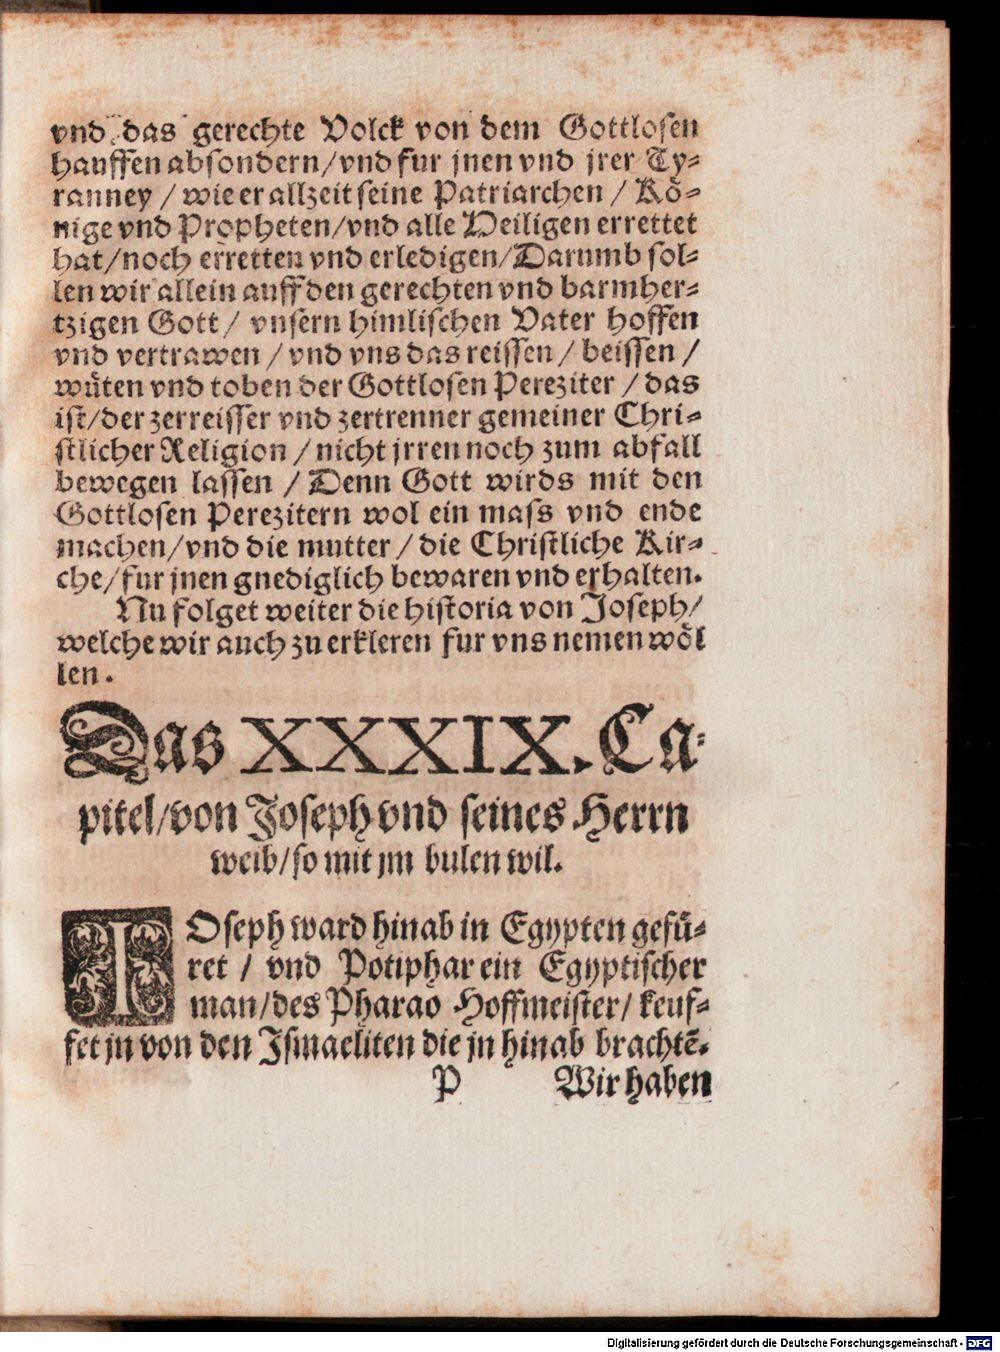 vnd das gerechte Volck von dem Gottlosen
hauffen absondern/vnd fur jnen vnd jrer Ty-
ranney / wie er allzeit seine Patriarchen / Kö-
nige vnd Propheten/vnd alle Heiligen errettet
hat/noch erretten vnd erledigen/Darumb sol-
len wir allein auff den gerechten vnd barmher-
tzigen Gott / vnsern himlischen Vater hoffen
vnd vertrawen / vnd vns das reissen / beissen /
wüten vnd toben der Gottlosen Pereziter / das
ist/der zerreisser vnd zertrenner gemeiner Chri-
stlicher Religion / nicht jrren noch zum abfall
bewegen lassen / Denn Gott wirds mit den
Gottlosen Perezitern wol ein mass vnd ende
machen/vnd die mutter / die Christliche Kir-
che/fur jnen gnediglich bewaren vnd erhalten.
Nu folget weiter die historia von Joseph/
welche wir auch zu erkleren fur vns nemen wöl
len.
Das XXXIX. Ca-
pitel/von Joseph vnd seines Herrn
weib/so mit jm bulen wil.
IOseph ward hinab in Egypten gefü-
ret / vnd Potiphar ein Egyptischer
man/des Pharao Hoffmeister/ keuf-
fet jn von den Ismaeliten die jn hinab brachtē.
P Wir haben
Digitalisierung gefördert durch die Deutsche Forschungsgemeinschaft - DFG